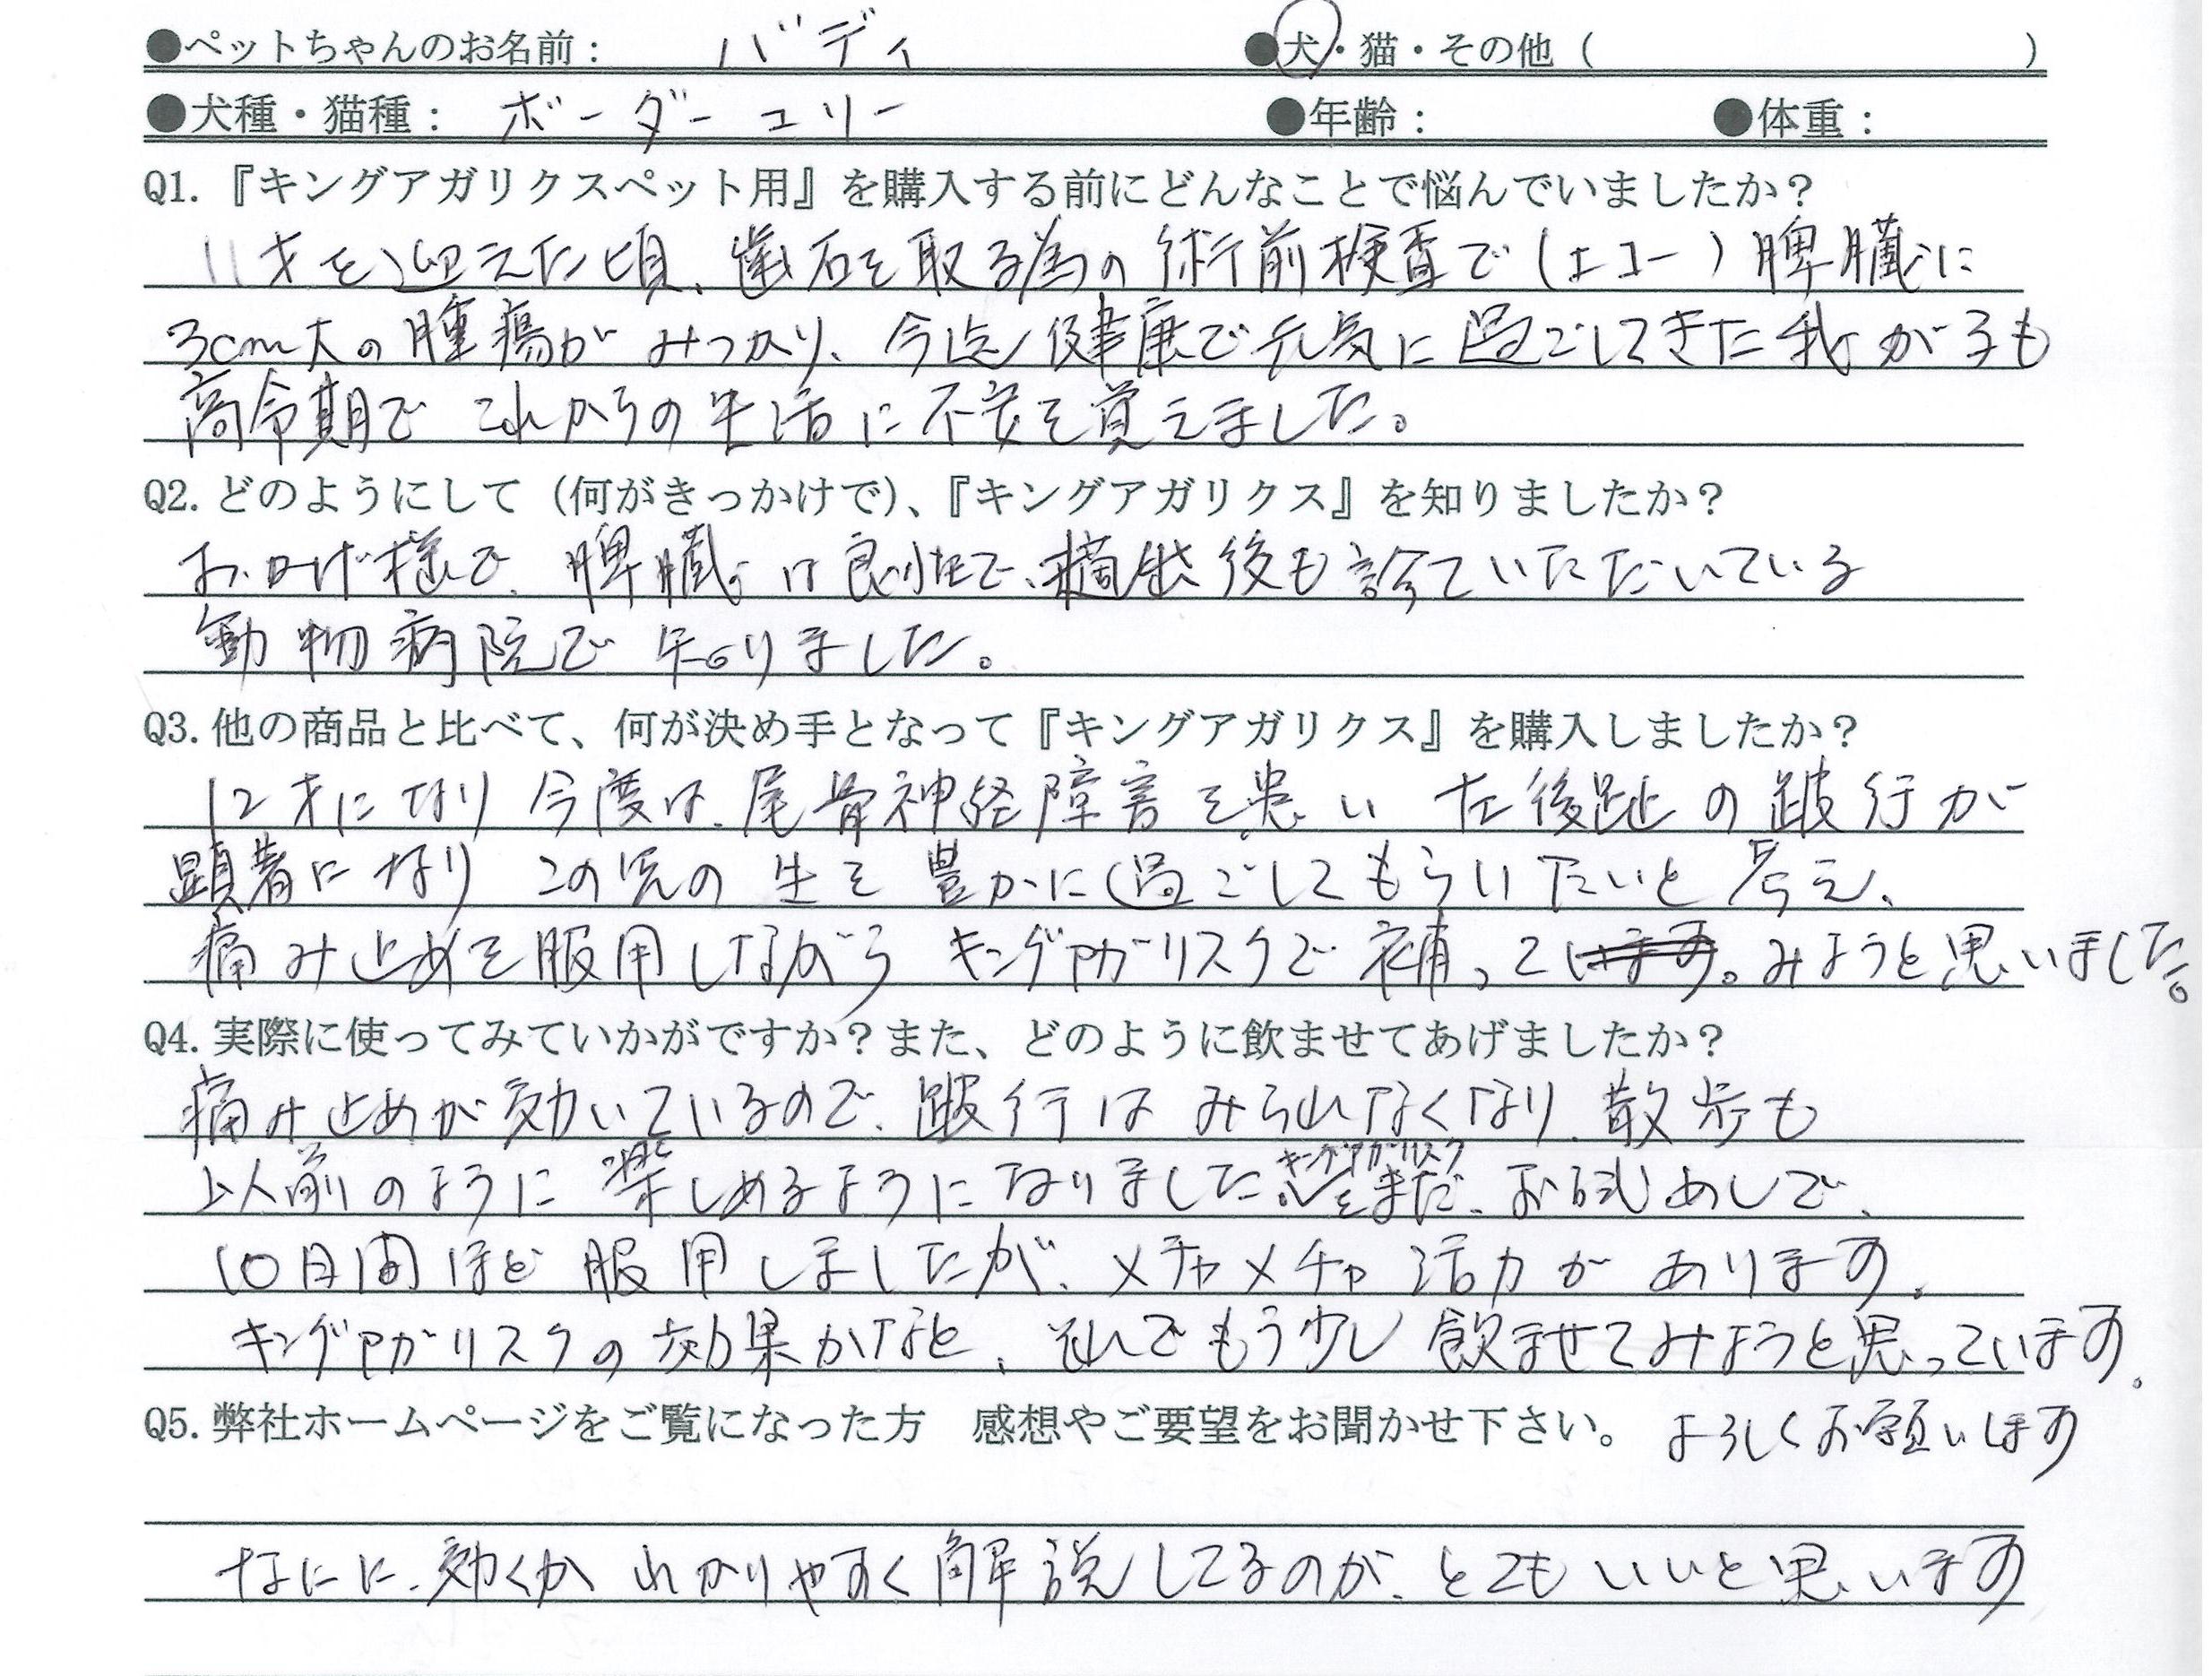 ●ペットちゃんのお名前： バディ ●犬・猫・その他（ ）
●犬種・猫種： ボーダーコリー ●年齢： ●体重：
Q1.『キングアガリクスペット用』を購入する前にどんなことで悩んでいましたか？
11才を迎えた頃、歯石を取る為の術前検査で(エコー)脾臓に
3cm大の腫瘍がみつかり、今迄健康で元気に過ごしてきた我が子も
高令期でこれからの生活に不安を覚えました。
Q2.どのようにして（何がきっかけで）、『キングアガリクス』を知りましたか？
おかげ様で、脾臓は良性で、摘出後も診ていただいている
動物病院で知りました。
Q3.他の商品と比べて、何が決め手となって『キングアガリクス』を購入しましたか？
12才になり今度は、尾骨神経障害を患い左後趾の跛行が
顕著になりこの児の生を豊かに過ごしてもらいたいと考え、
痛み止めを服用しながらキングアガリスクで補ってます。みようと思いました。
Q4.実際に使ってみていかがですか？また、どのように飲ませてあげましたか？
痛み止めが効いているので、跛行はみられなくなり、散歩も
以前のように楽しめるようになりました。キングアガリスクをまだ、お試めしで、
10日間ほど服用しましたが、メチャメチャ活力があります。
キングアガリスクの効果かなと、それでもう少し飲ませてみようと思っています。
Q5.弊社ホームページをご覧になった方 感想やご要望をお聞かせ下さい。 よろしくお願いします
なにに、効くかわかりやすく解説してるのが、とてもいいと思います